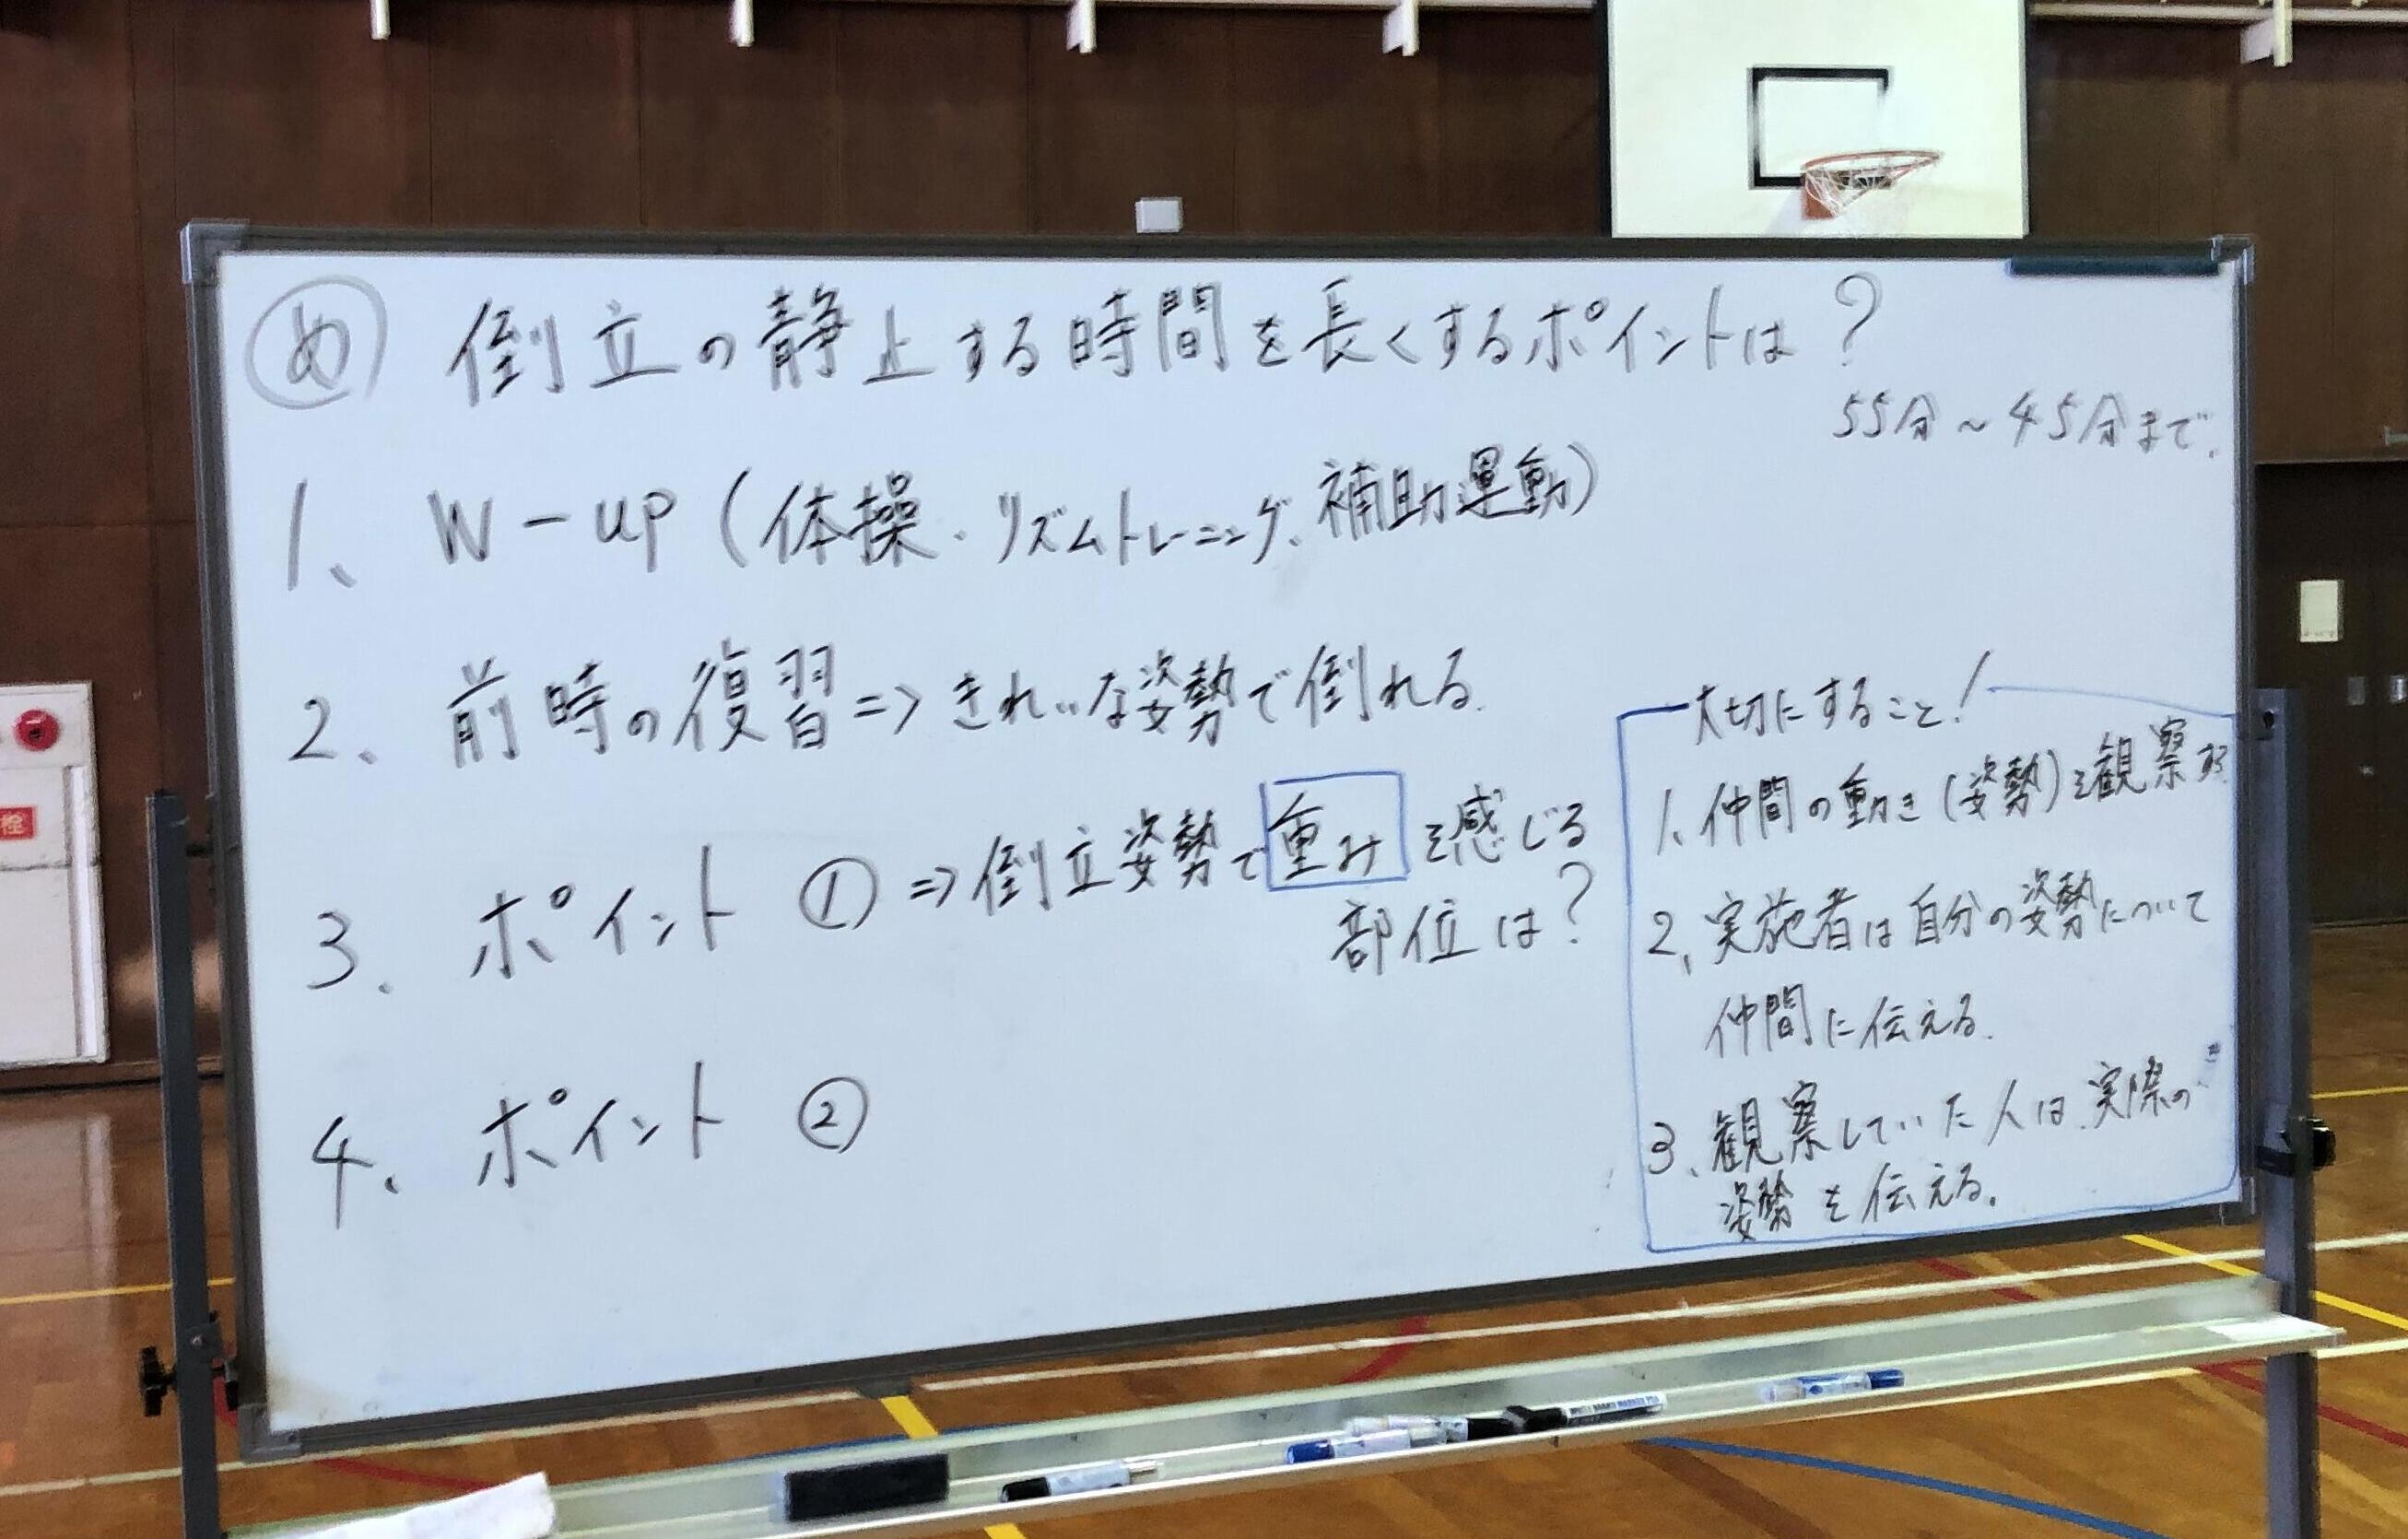 め 倒立の静止する時間を長くするポイントは？
55分～45分まで.
1、 W-up (体操・リズムトレーニング、補助運動)
2、 前時の復習⇒きれいな姿勢で倒れる.
3. ポイント ①⇒倒立姿勢で重みを感じる
部位は？
4、 ポイント ②
大切にすること！
1、仲間の動き(姿勢)を観察する
2、実施者は自分の姿勢について
仲間に伝える.
3、観察していた人は、実際の
姿勢を伝える.
栓